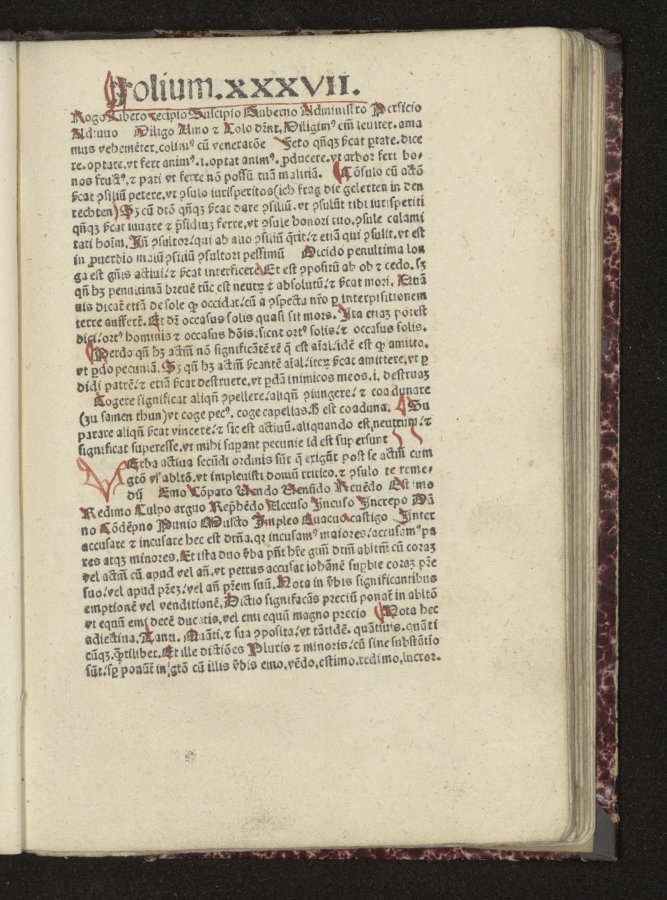 Folium.XXXVII.
Rogo Libero recipio Suscipio Guberno Administro Perficio
Adiuuo Diligo Amo ⁊ Colo dr̄nt. Diligimꝰ cū leuiter. ama
mus vehemēter. colimꝰ cū veneratōe Feto qn̄qꝫ ſcat ptate. dice
re. optare. vt fert animꝰ. i. optat animꝰ. ꝓducere. vt arbor fert bo-
nos fructꝰ. ⁊ pati vt ferre nō possū tuā maliciā. Cōsulo cū actō
ſcat ꝯsiliū petere. vt ꝯsulo iurisperitos (ich frag die gelerten in den
rechten) Sꝫ cū dtō qn̄qꝫ ſcat dare ꝯsiliū. vt ꝯsulūt tibi iurisperiti
qn̄qꝫ ſcat iuuare ⁊ p̄sidiuꝫ ferre. vt ꝯsule honori tuo. ꝯsule calami
tati hoīm. Jn̄ ꝯsultor. qui ab alio ꝯsiliū q̄rit. ⁊ etiā qui ꝯsulit. vt est
in ꝓuerbio malū ꝯsiliū ꝯsultori pessimū Occido penultima lon
ga est gn̄is actiui. ⁊ ſcat interficere. Et est ꝯpositū ab ob ⁊ cedo. sꝫ
qn̄ hꝫ penultimā breuē tūc est neutꝝ ⁊ absolutū. ⁊ ſcat mori. Quā
uis dicat̄ etiā de sole ꝙ occidat. cū a ꝯspectu nr̄o ꝑ interpositionem
terre auffert̄. Et dr̄ occasus solis quasi sit mors. Jta enaꝫ potest
dici. ortꝰ hominis ⁊ occasus hōis. sicut ortꝰ solis. ⁊ occasus solis.
Perdo qn̄ hꝫ actīm nō significātē rē q̄ est aīal. idē est ꝙ amitto.
vt ꝑdo pecuniā. Sꝫ qn̄ hꝫ actīm ſcantē aīal. iteꝝ ſcat amittere. vt ꝑ
didi patrē. ⁊ etiā ſcat destruere. vt ꝑdā inimicos meos. i. destruaꝫ
Cogere significat aliqn̄ ꝯpellere. aliqn̄ ꝯiungere. ⁊ coadunare
(zu samen thun) vt coge pecꝰ. coge capellas. h̄ est coaduna. Su
parare aliqn̄ ſcat vincere. ⁊ sic est actiuū. aliquando est neutrum. ⁊
significat superesse. vt mihi supant pecunie id est supersunt
VErba actiua secūdi ordinis sūt q̄ exigūt post se actīm cum
gtō vl̓ abltō. vt impleuisti domū tritico. ⁊ ꝯpalo te reme-
dij Emo Cōparo Uendo Uensido Reuēdo Estimo
Redimo Culpo arguo Rep̄hēdo Accuso Jncuso Jncrepo Dā
no Cōdēpno Punio Mulcto Jmpleo Euacuo castigo Jnter
accusare ⁊ incusare hec est dr̄na. qꝛ incusamꝰ maiores. accusamꝰ pa
res atqꝫ minores. Et ista duo v̄ba pn̄t hr̄e gtm̄ dtm̄ abltm̄ cū coraꝫ
vel actm̄ cū apud vel an̄. vt petrus accusat iohānē supbie coraꝫ pr̄e
suo. vel apud pr̄eꝫ. vel an̄ pr̄em suū. Nota in v̄bis significantibus
emptionē vel venditionē. Dictio significās preciū ponat̄ in abltō
vt equū emi decē ducatis. vel emi equū magno precio Nota hec
adiectiua. Tanti. Quāti. ⁊ sua ꝯposita. vt tātidē. quātiuis. quāti
cūqꝫ. q̄ntilibet. Et ille dictiōes Pluris ⁊ minoris. cū sine substātio
sūt. sꝑ ponūt̄ in gtō cū illis v̄bis emo. vēdo. estimo. redimo. lucror.